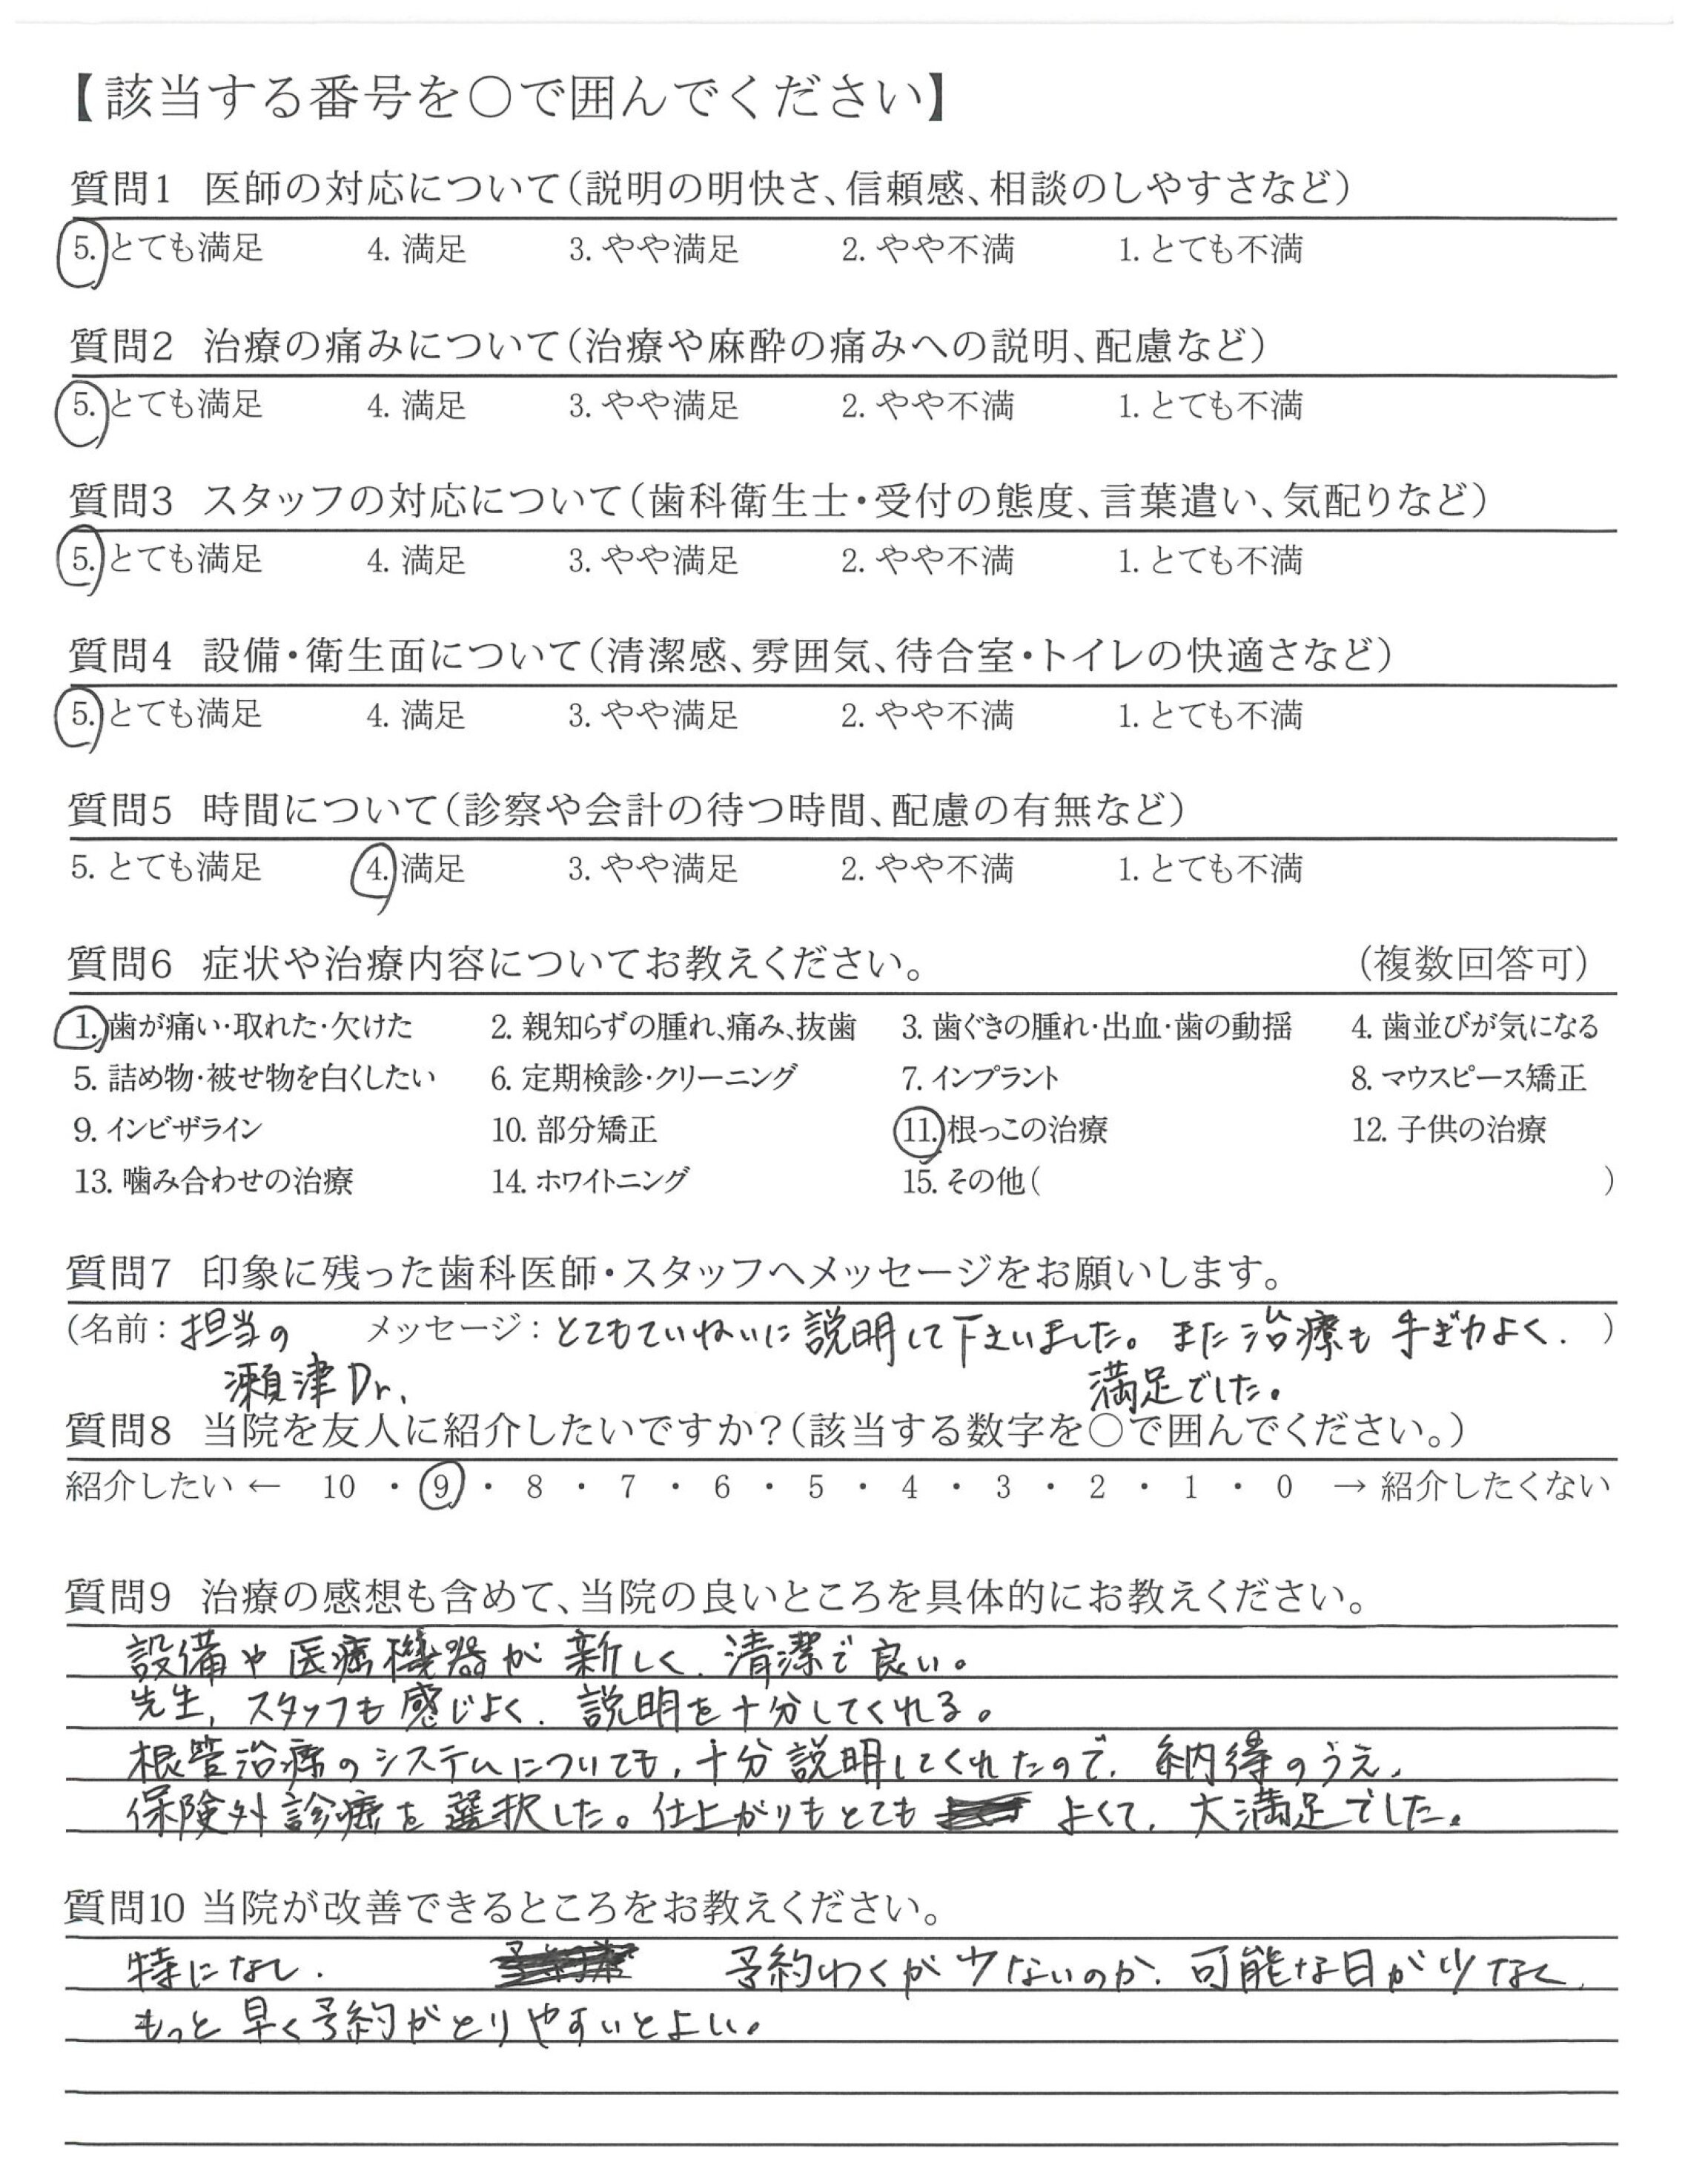 【該当する番号を○で囲んでください】
質問1 医師の対応について(説明の明快さ、信頼感、相談のしやすさなど)
5. とても満足 4. 満足 3. やや満足 2. やや不満 1. とても不満
質問2 治療の痛みについて(治療や麻酔の痛みへの説明、配慮など)
5. とても満足 4. 満足 3. やや満足 2. やや不満 1. とても不満
質問3 スタッフの対応について(歯科衛生士・受付の態度、言葉遣い、気配りなど)
5. とても満足 4. 満足 3. やや満足 2. やや不満 1. とても不満
質問4 設備・衛生面について(清潔感、雰囲気、待合室・トイレの快適さなど)
5. とても満足 4. 満足 3. やや満足 2. やや不満 1. とても不満
質問5 時間について(診察や会計の待つ時間、配慮の有無など)
5. とても満足 4. 満足 3. やや満足 2. やや不満 1. とても不満
質問6 症状や治療内容についてお教えください。 (複数回答可)
1. 歯が痛い・取れた・欠けた 2. 親知らずの腫れ、痛み、抜歯 3. 歯ぐきの腫れ・出血・歯の動揺 4. 歯並びが気になる
5. 詰め物・被せ物を白くしたい 6. 定期検診・クリーニング 7. インプラント 8. マウスピース矯正
9. インビザライン 10. 部分矯正 11. 根っこの治療 12. 子供の治療
13. 噛み合わせの治療 14. ホワイトニング 15. その他( )
質問7 印象に残った歯科医師・スタッフへメッセージをお願いします。
(名前: 担当の メッセージ: とてもていねいに説明して下さいました。また治療も手ぎわよく. )
瀬津Dr. 満足でした。
質問8 当院を友人に紹介したいですか?(該当する数字を○で囲んでください。)
紹介したい ← 10 ・ 9 ・ 8 ・ 7 ・ 6 ・ 5 ・ 4 ・ 3 ・ 2 ・ 1 ・ 0 → 紹介したくない
質問9 治療の感想も含めて、当院の良いところを具体的にお教えください。
設備や医療機器が新しく、清潔で良い。
先生, スタッフも感じよく、説明を十分してくれる。
根管治療のシステムについても, 十分説明してくれたので、納得のうえ、
保険外診療を選択した。仕上がりもとても よくて、大満足でした。
質問10 当院が改善できるところをお教えください。
特になし. 予約わくが少ないのか、可能な日が少なく、
もっと早く予約がとりやすいとよい。